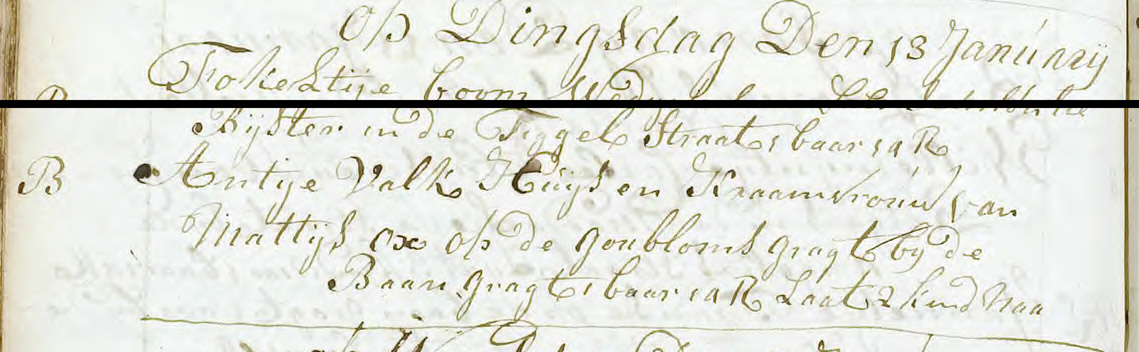 op Dingsdag Den 13 Januarij
Fokeltije boom Wedu
Bijster in de Tiggel Straat 1 baar 1a R
B Antije Valk Huijs en Kraamvrouw van
Mattijs ox op de goubloms gragt bij de
Baan gragt 1 baar 1a R Laat 2 kind Naa